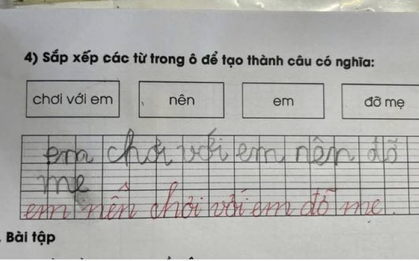 4) Sắp xếp các từ trong ô để tạo thành câu có nghĩa:
chơi với em nên em đỡ mẹ
em chơi với em nên đỡ
mẹ
em nên chơi với em đỡ mẹ.
. Bài tập